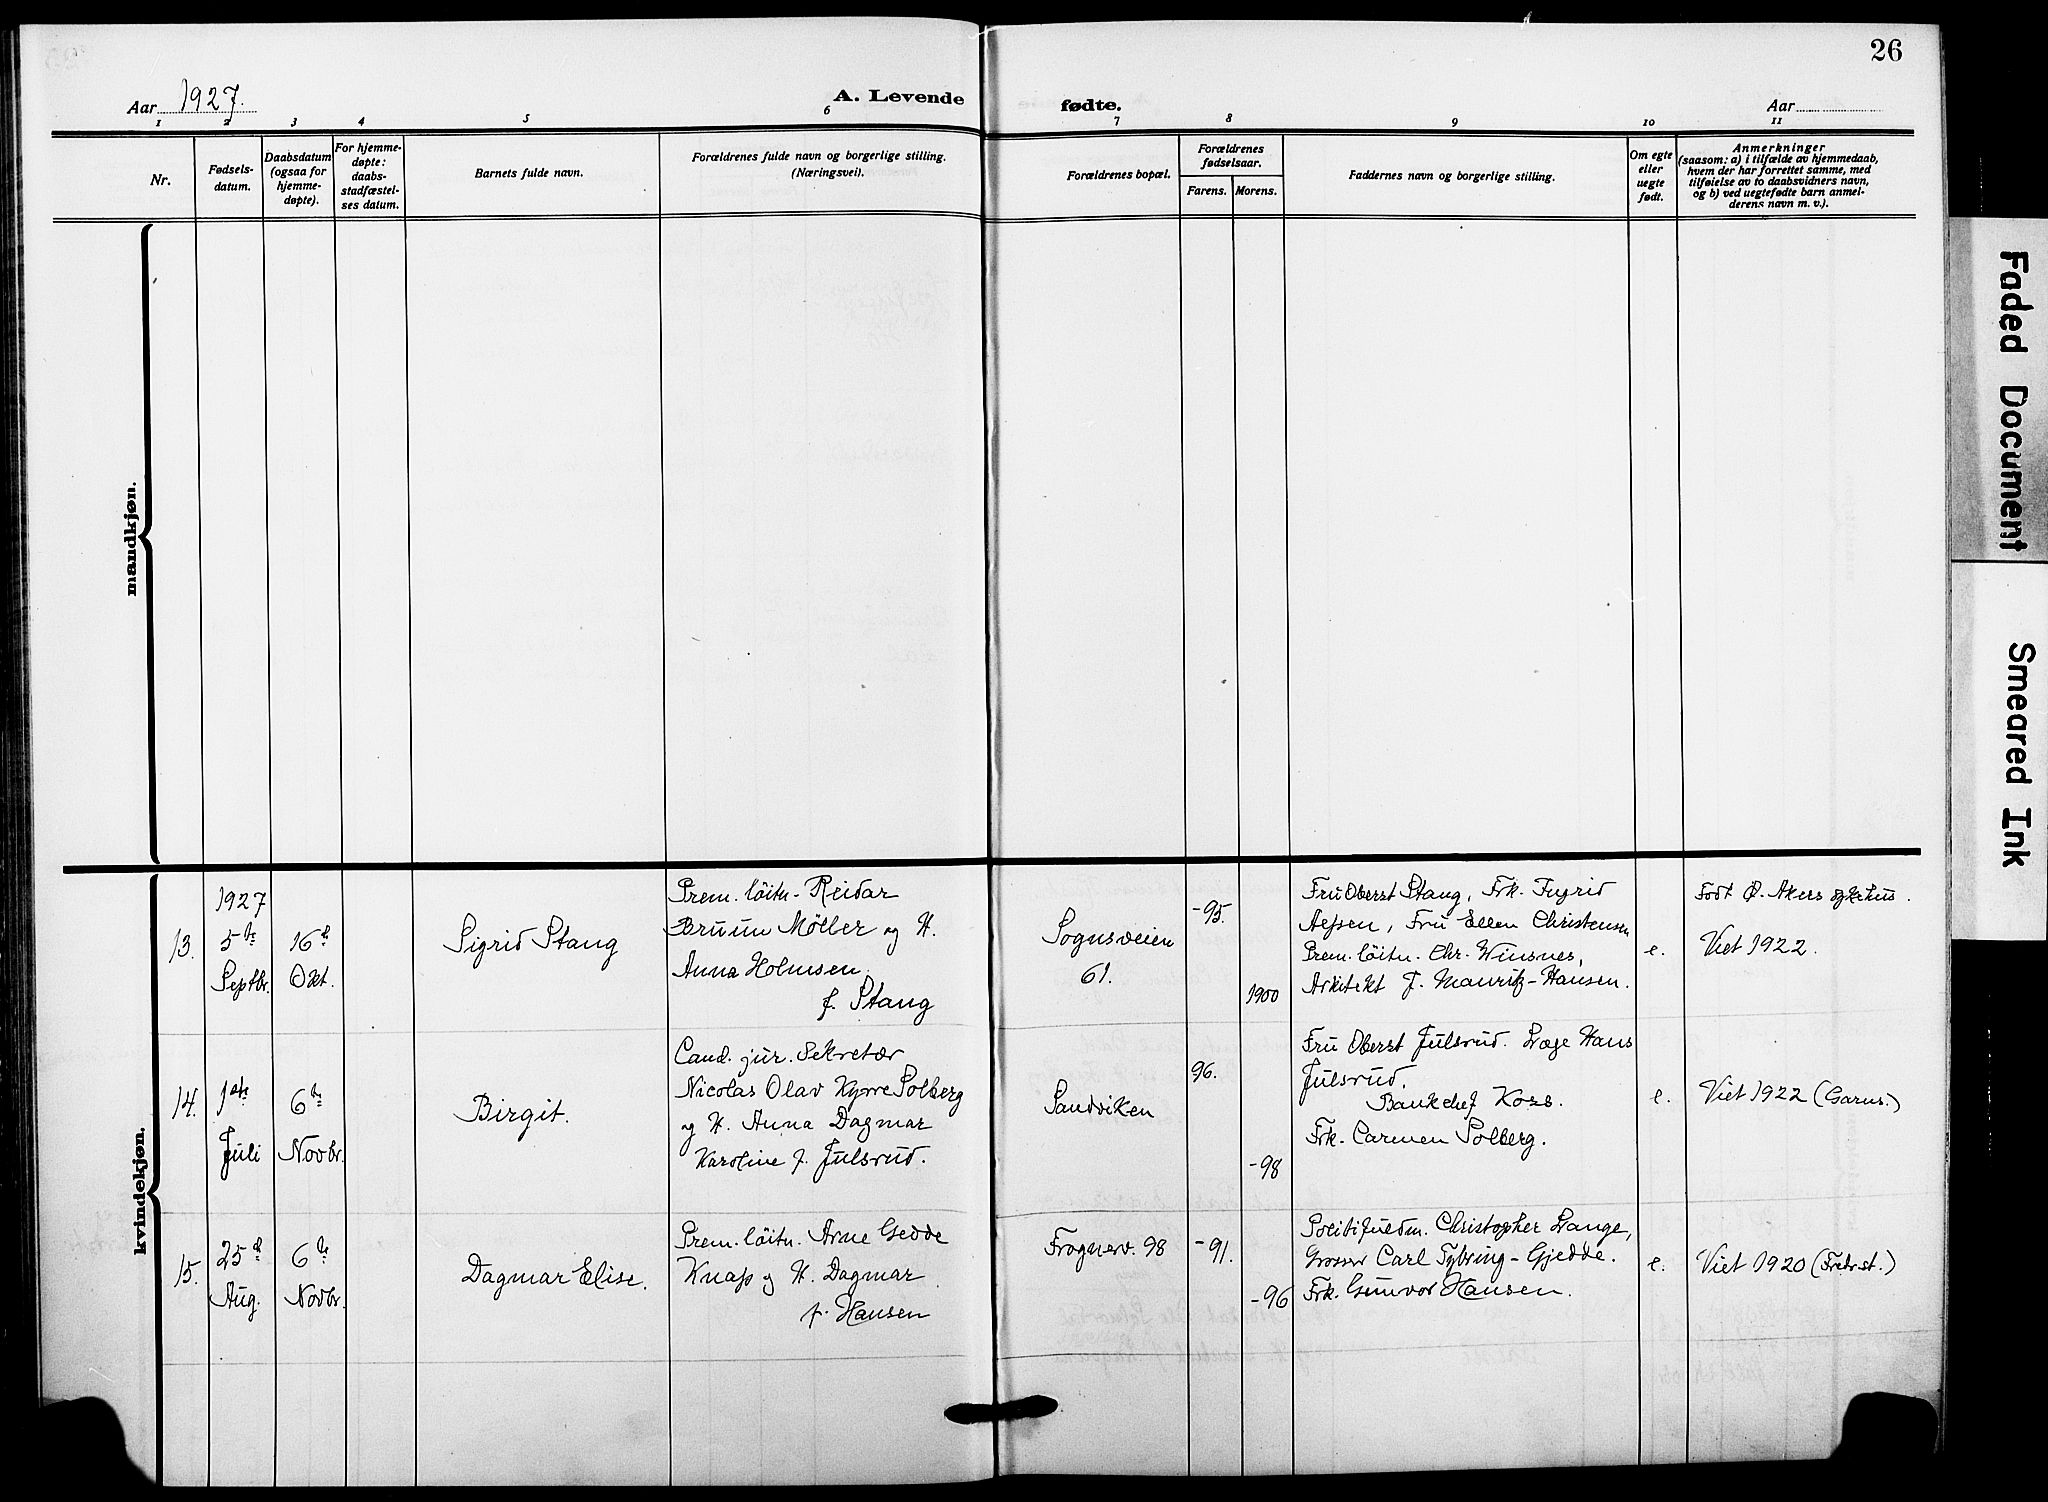 26
Aar 1927.
A. Levende
fødte.
Aar
1 2 3 4 5 6 7 8 9 10 11
Nr.
Fødsels-
datum.
Daabsdatum
(ogsaa for
hjemme-
døpte).
For hjemme-
døpte:
daabs-
stadfæstel-
ses datum.
Barnets fulde navn.
Forældrenes fulde navn og borgerlige stilling.
(Næringsvei).
Forældrenes bopæl.
Forældrenes
fødselsaar.
Farens. Morens.
Faddernes navn og borgerlige stilling.
Om egte
eller
uegte
født.
Anmerkninger
(saasom: a) i tilfælde av hjemmedaab,
hvem der har forrettet samme, med
tilføielse av to daabsvidners navn,
og b) ved uegtefødte barn anmel-
derens navn m. v.).
mandkjøn.
kvindekjøn.
13.
1927
5te
Septbr.
16de
Okt.
Sigrid Stang
Prem. löitn. Reidar
Bruun Möller og H.
Anna Holmsen
f. Stang
Sognsveien
61.
-95.
1900
Fru Oberst Stang, Frk. Ingrid
Fru Ellen Christensen
Prem. löitn. Chr. Winsnes,
Arkitekt J. Mauritz-Hansen.
e.
Født Ø. Akers sykehus.
Viet 1922.
14.
1ste
Juli
6te
Novbr.
Birgit.
Cand. jur. Sekretær
Nicolas Olav Kyrre Solberg
og H. Anna Dagmar
Karoline f. Julsrud.
Sandviken
96.
-98
Fru Oberst Julsrud. Læge Hans
Julsrud.
Bankchef Koss.
Frk. Carmen Solberg.
e.
Viet 1922 (Garns.)
15.
25de
Aug.
6te
Novbr.
Dagmar Elise.
Prem. löitn. Arne Gedde
Knap og H. Dagmar
f. Hansen
Frognerv. 98
-91.
-96
Politifuldm. Christopher Lange,
Grosser Carl Tybring-Gjedde.
Frk. Gunvor Hansen.
e.
Viet 1920 (Fredr.st.)
Faded Document
Smeared Ink